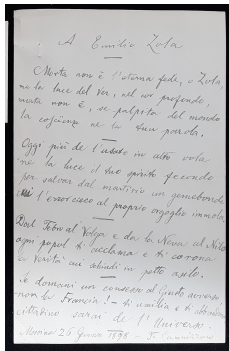 A Emilio Zola
Morta non è l'eterna fede, o Zola,
ne la luce del Ver, nel cor profondo,
morta non è, se palpita del mondo
la coscienza ne la tua parola.
Oggi più de l'usato in alto vola
ne la luce il tuo spirito fecondo
per salvar dal martirio un gemebondo
cui l'error cieco al proprio orgoglio immola.
Dal Tebro al Volga e da la Neva al Nilo
ogni popol ti acclama e ti corona
la Verità cui schiudi in petto asilo.
Se domani un consesso al Giusto avverso
non la Francia! – ti umilia e ti abbandona
cittadino sarai de l'Universo.
Messina 26 Gennaio 1898